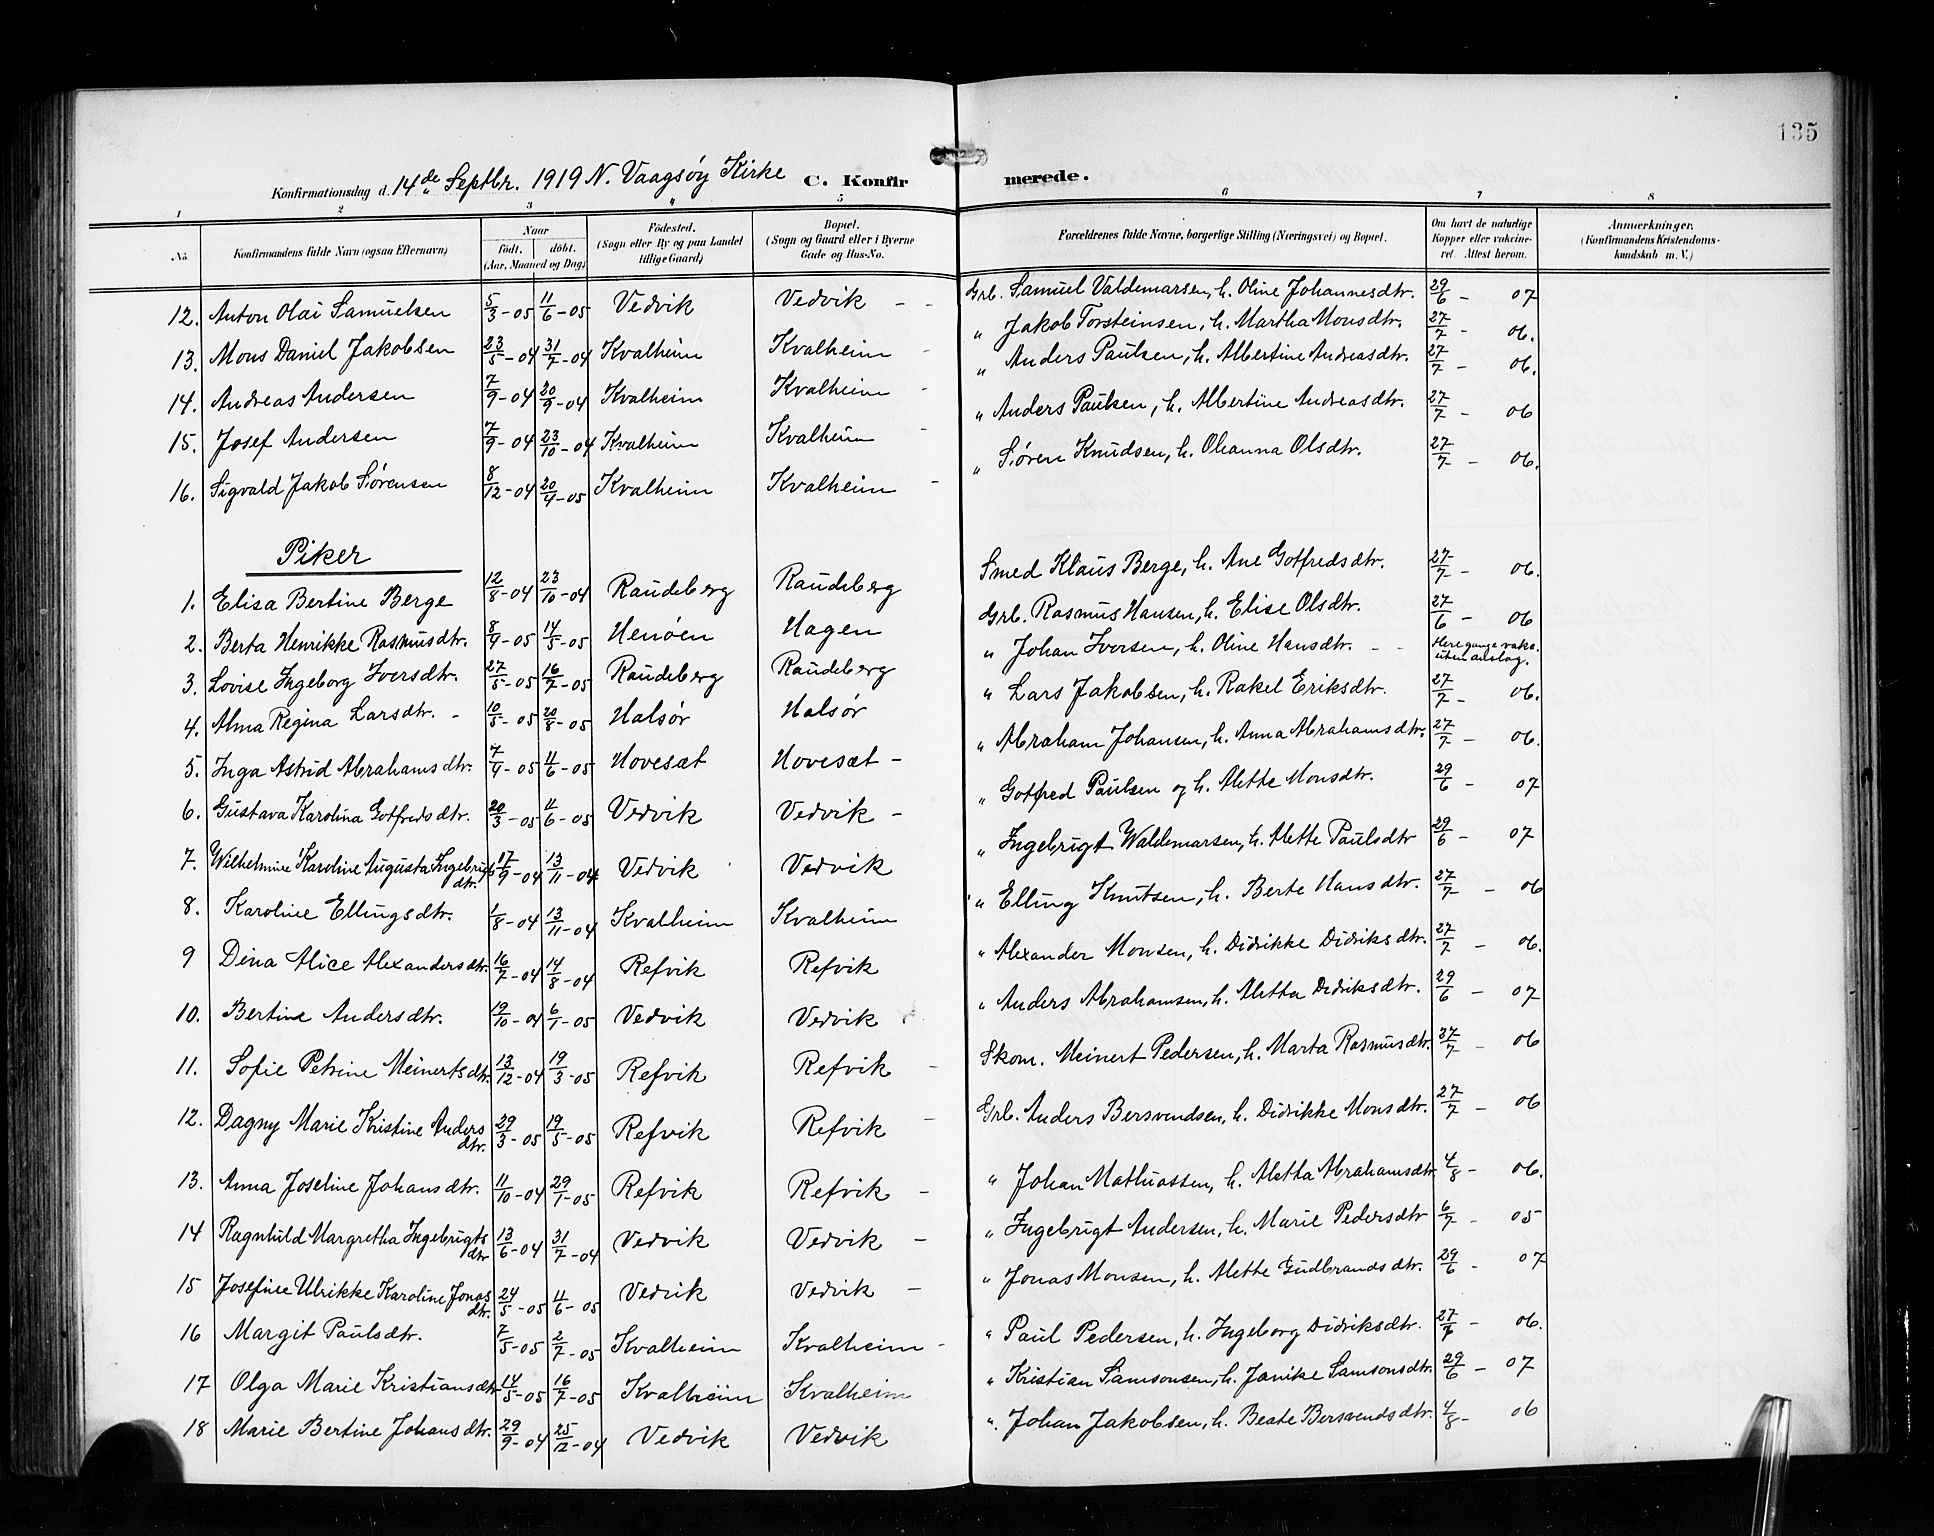 135
Konfirmationsdag d. 14de Septbr. 1919 N. Vaagsøy Kirke C. Konfirmerede.
1 2 3 4 5 6 7 8
No. Konfirmandens fulde Navn (ogsaa Efternavn) Naar født. døbt. (Aar, Maaned og Dag) Fødested. (Sogn eller By og paa Landet tillige Gaard) Bopæl. (Sogn og Gaard eller i Byerne Gade og Hus-No. Forældrenes fulde Navne, borgerlige Stilling (Næringsvei) og Bopæl. Om havt de naturlige Kopper eller vakcineret. Attest herom. Anmærkninger. (Konfirmandens Kristendomskundskab m. V.)
12. Anton Olai Samuelsen 5/3-05 11/6-05 Vedvik Vedvik - - Grb. Samuel Valdemarsen, h. Oline Johannesdtr. 29/6 - 07
13. Mons Daniel Jakobsen 23/5-04 31/7-04 Kvalheim Kvalheim - " Jakob Torsteinsen, h. Martha Monsdtr. 27/7 - 06.
14. Andreas Andersen 7/9-04 20/9-04 Kvalheim Kvalheim - " Anders Paulsen, h. Albertine Andreasdtr. 27/7 - 06.
15. Josef Andersen 7/9-04 23/10-04 Kvalheim Kvalheim - " Anders Paulsen, h. Albertine Andreasdtr. 27/7 - 06
16. Sigvald Jakob Sørensen 8/12-04 20/4-05 Kvalheim Kvalheim - " Søren Knudsen, h. Ohanna Olsdtr. 27/7 - 06.
Piker
1. Elisa Bertine Berge 12/8-04 23/10-04 Raudeberg Raudeberg Smed Klaus Berge, h. Ane Gotfredsdtr. 27/7 - 06.
2. Berta Henrikke Rasmusdtr. 8/4-05 14/5-05 Henøen Hagen Grb. Rasmus Hansen, h. Elise Olsdtr. 27/6 - 06
3. Lovise Ingeborg Iversdtr. 27/5-05 16/7-05 Raudeberg Raudeberg " Johan Iversen, h. Oline Hansdtr. - - flere gange vaks. uten anslag.
4. Alma Regina Larsdtr. - 10/5-05 20/8-05 Halsør Halsør " Lars Jakobsen, h. Rakel Eriksdtr. 27/7 - 06.
5. Inga Astrid Abrahamsdtr. 7/4-05 11/6-05 Hovesæt Hovesæt - " Abraham Johansen, h. Anna Abrahamsdtr. 27/7 - 06.
6. Gustava Karolina Gotfredsdtr. 20/3-05 11/6-05 Vedvik Vedvik - " Gotfred Paulsen og h. Alette Monsdtr. 29/6 - 07
7. Wilhelmine Karoline Augusta Ingebrigtsdtr. 17/9-04 13/11-04 Vedvik Vedvik " Ingebrigt Waldemarsen, h. Alette Paulsdtr 29/6 - 07
8. Karoline Ellingsdtr. 1/8-04 13/11-04 Kvalheim Kvalheim " Elling Knutsen, h. Berte Hansdtr. 27/7 - 06
9 Dina Alice Alexandersdtr. 16/7-04 14/8-04 Refvik Refvik " Alexander Monsen, h. Didrikke Didriksdtr. 27/7 - 06.
10. Bertine Andersdtr. 19/10-04 6/1-05 Vedvik Vedvik " Anders Abrahamsen, h. Aletta Didriksdtr. 29/6 - 07
11. Sofie Petrine Meinertsdtr. 13/12-04 19/3-05 Refvik Refvik - Skom. Meinert Pedersen, h. Marta Rasmusdtr. 27/7 - 06
12. Dagny Marie Kristine Andersdtr. 29/3-05 19/5-05 Refvik Refvik - Grb. Anders Bersvendsen, h. Didrikke Monsdtr. 27/7 - 06
13. Anna Joseline Johansdtr. 11/10-04 29/1-05 Refvik Refvik - " Johan Mathiassen, h. Aletta Abrahamsdtr. 4/8 - 06.
14 Ragnhild Margretha Ingebrigtsdtr 13/6-04 31/7-04 Vedvik Vedvik - " Ingebrigt Andersen, h. Marie Pedersdtr 6/7 - 05
15 Josefine Ulrikke Karoline Jonasdtr. 24/5-05 11/6-05 Vedvik Vedvik - " Jonas Monsen, h. Alette Gudbrandsdtr. 29/6 - 07
16 Margit Paulsdtr. 7/5-05 2/7-05 Kvalheim Kvalheim - " Paul Pedersen, h. Ingeborg Didriksdtr. 27/7 - 06.
17 Olga Marie Kristiansdtr 14/5-05 16/7-05 Kvalheim Kvalheim " Kristian Samsonsen, h. Janike Samsonsdtr. 29/6 - 07
18 Marie Bertine Johansdtr. 29/9-04 25/12-04 Vedvik Vedvik " Johan Jakobsen, h. Beate Bersvendsdtr. 4/8 - 06